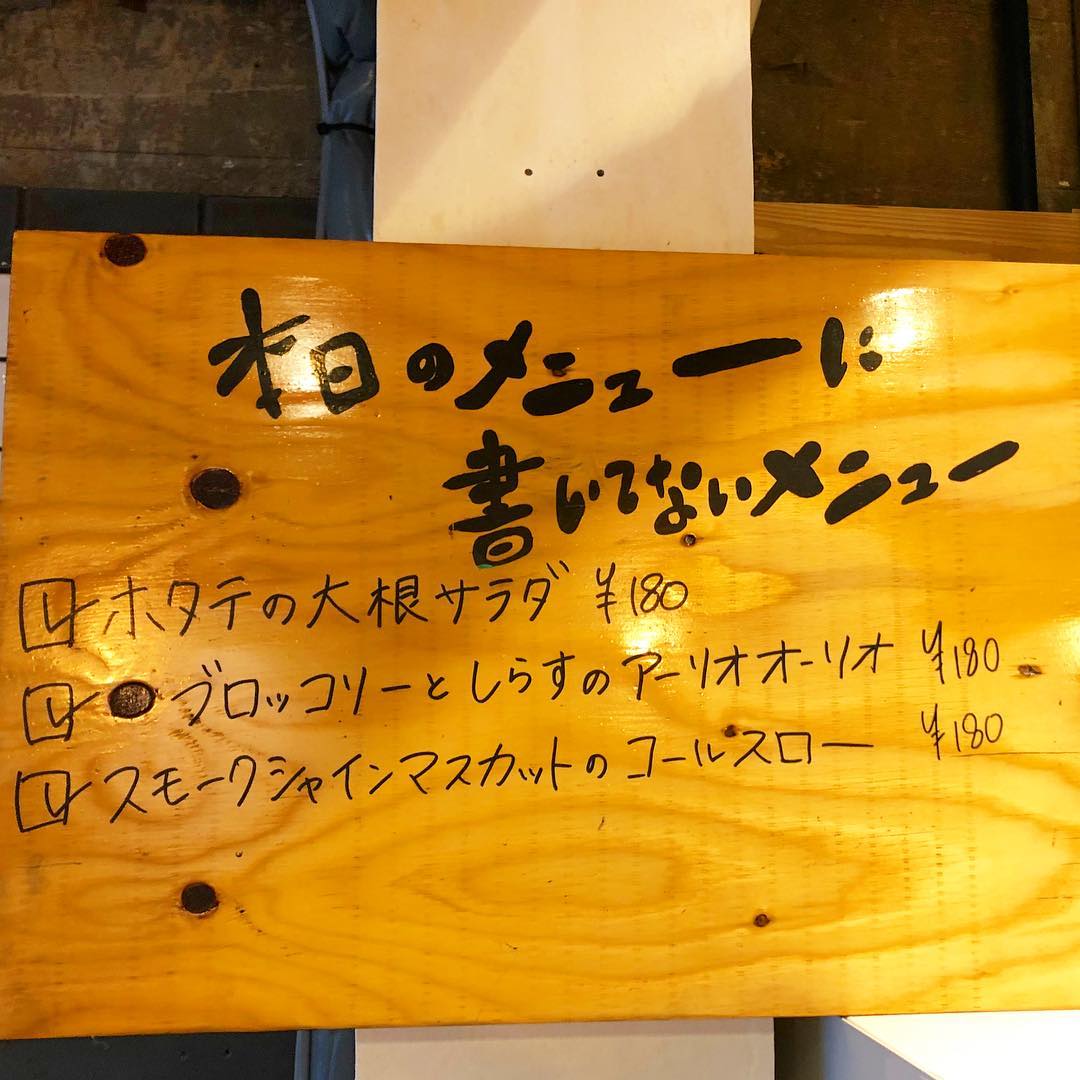 本日のメニューに
書いてないメニュー
☑ホタテの大根サラダ ¥180
☑ブロッコリーとしらすのアーリオオーリオ ¥180
☑スモークシャインマスカットのコールスロー ¥180